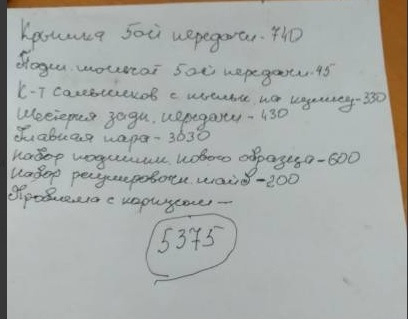 Крышка 5ой передачи-740
Подш. игольчат 5ой передачи-45
К-т сальников с пыльн. на кулису-330
Шестерня задн. передачи-430
Главная пара-3030
Набор подшипн. нового образца-600
Набор регулировочн. шайб-200
Проблема с корпусом—
5375